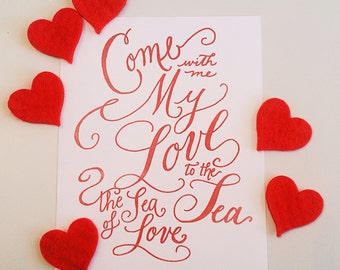 Come with me
My
Love
to the
Sea
The Sea
of Love